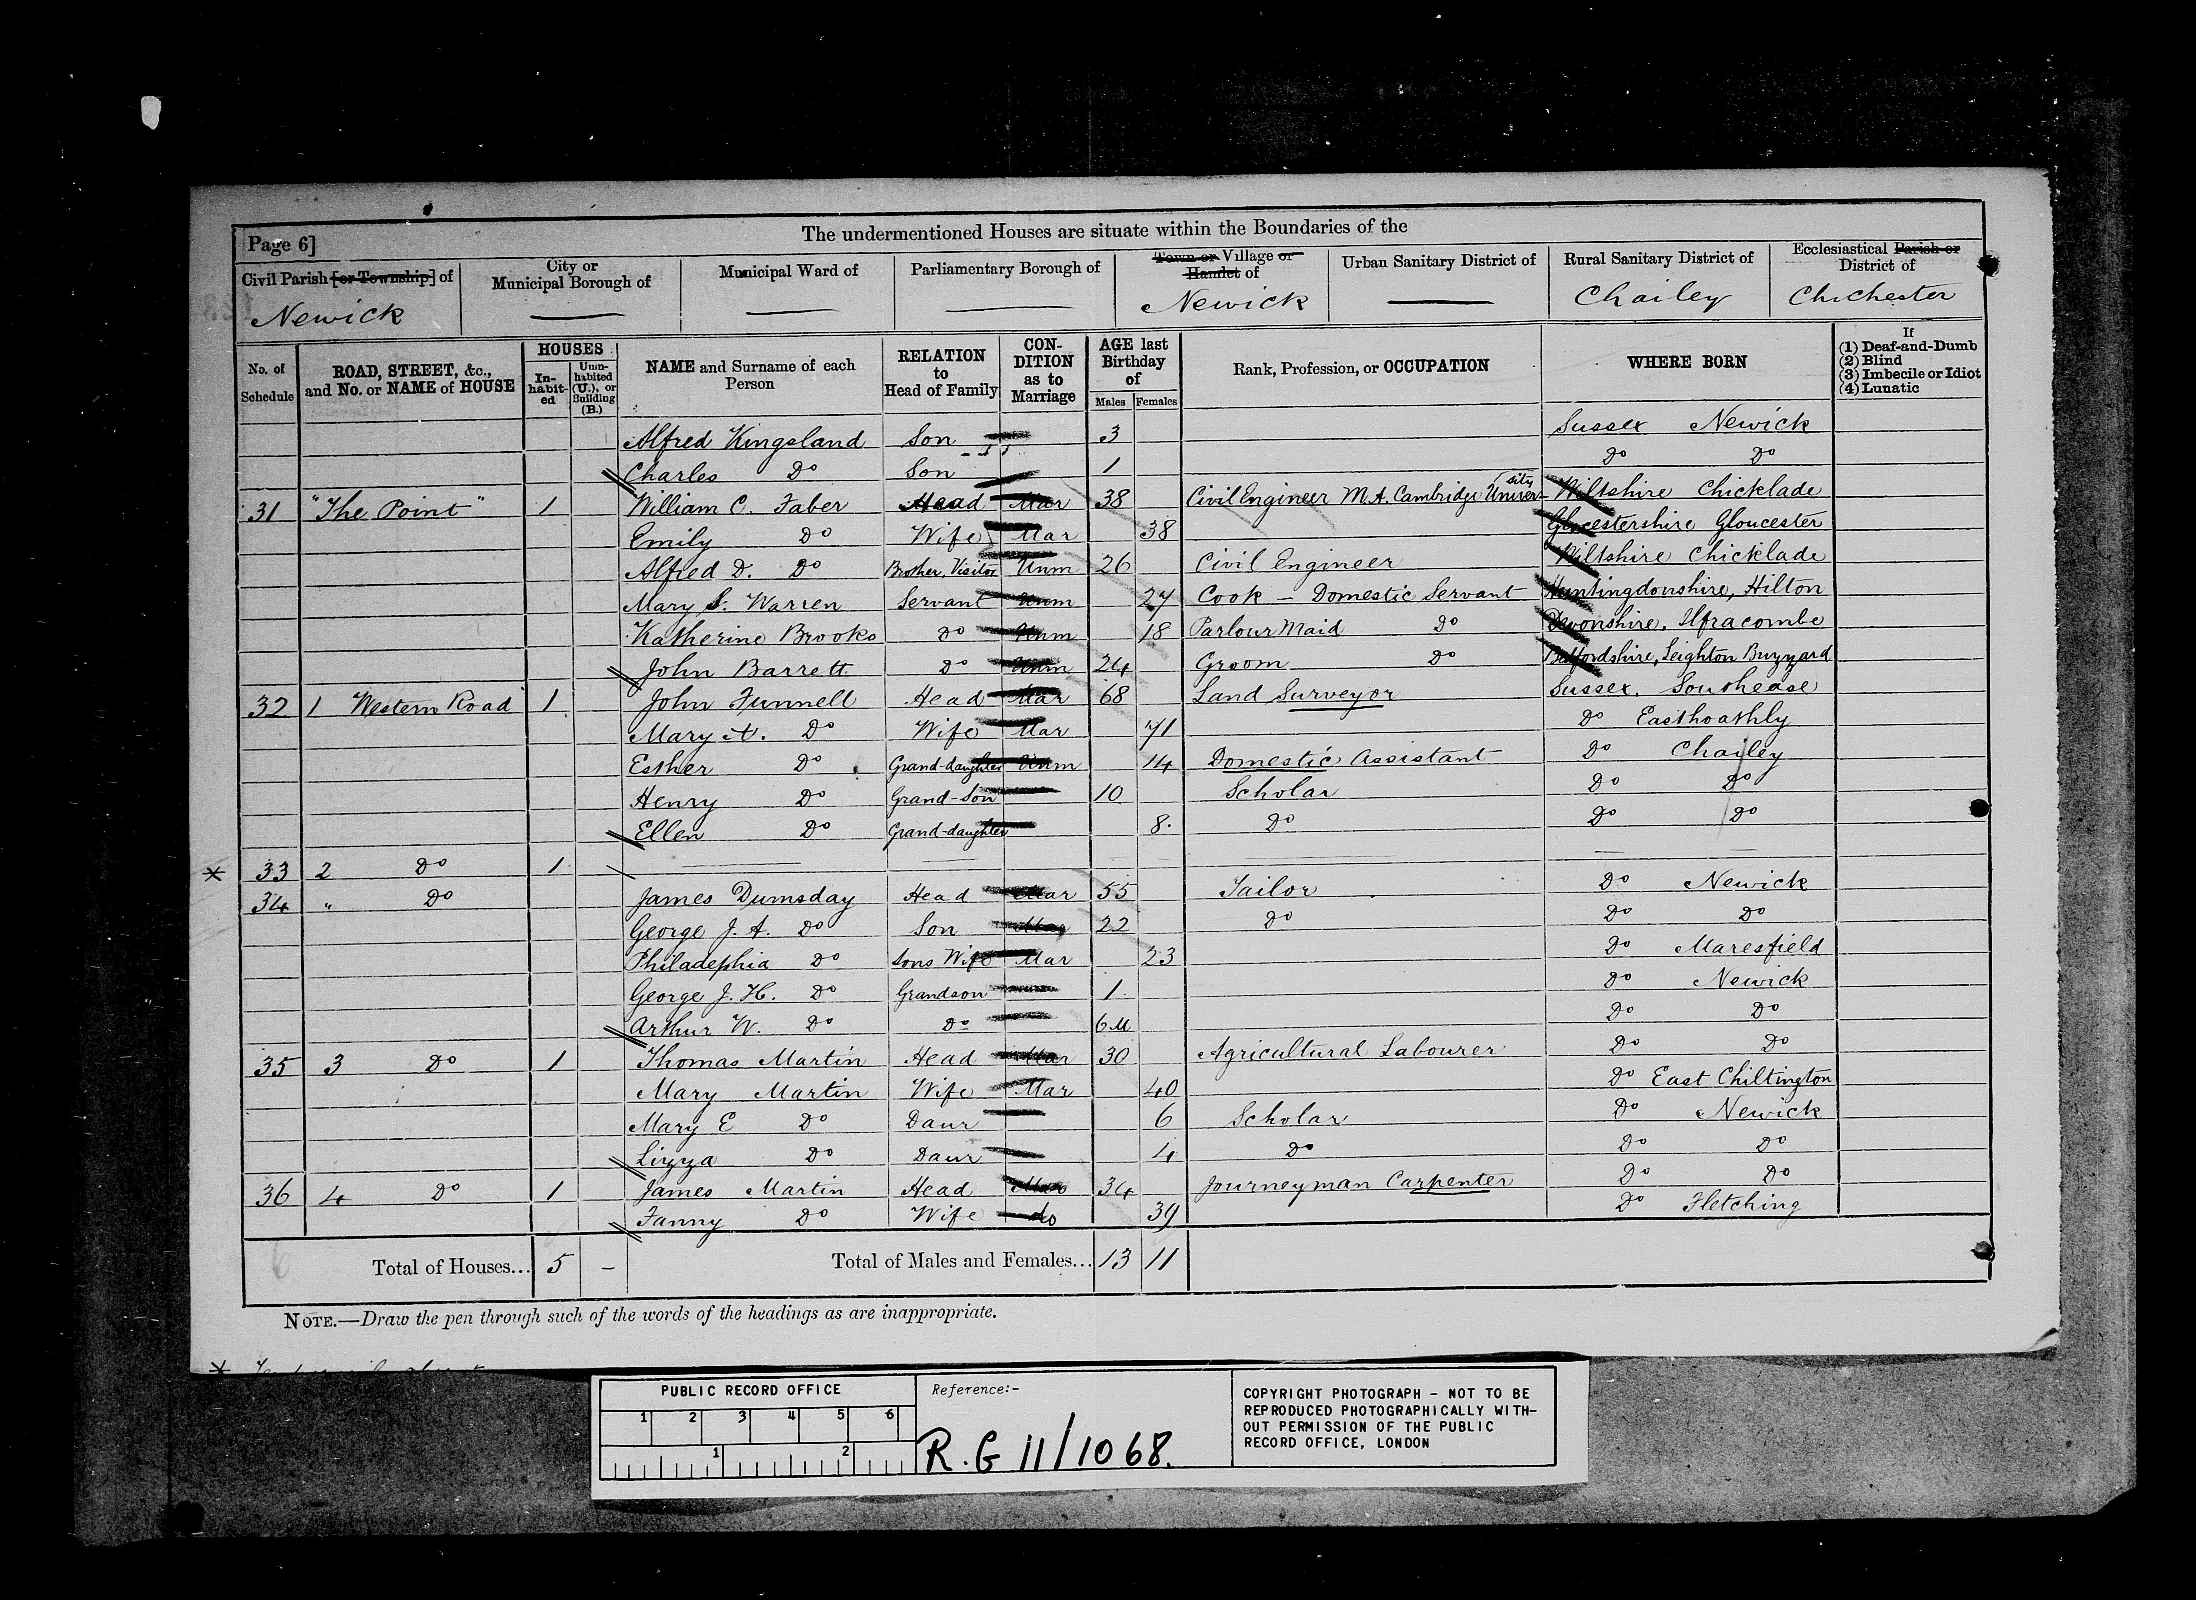 Page 6]
The undermentioned Houses are situate within the Boundaries of the
Civil Parish [or Township] of
Newick
City or Municipal Borough of
—
Municipal Ward of
—
Parliamentary Borough of
—
Town or Village or Hamlet of
Newick
Urban Sanitary District of
—
Rural Sanitary District of
Chailey
Ecclesiastical Parish or District of
Chichester
No. of Schedule
ROAD, STREET, &c., and No. or NAME of HOUSE
HOUSES
In-habit-ed
Unin-habited (U.), or Building (B.)
NAME and Surname of each Person
RELATION to Head of Family
CON-DITION as to Marriage
AGE last Birthday of
Males Females
Rank, Profession, or OCCUPATION
WHERE BORN
If
(1) Deaf-and-Dumb
(2) Blind
(3) Imbecile or Idiot
(4) Lunatic
Alfred Kingsland Son 3 Sussex Newick
Charles Do Son 1 Do Do
31 "The Point" 1 William C. Faber Head Mar 38 Civil Engineer M.A. Cambridge University Wiltshire Chicklade
Emily Do Wife Mar 38 Glocestershire Gloucester
Alfred D. Do Brother, Visitor Unm 26 Civil Engineer Wiltshire Chicklade
Mary S. Warren Servant Unm 27 Cook — Domestic Servant Huntingdonshire, Hilton
Katherine Brooks Do Unm 18 Parlour Maid Do Devonshire. Ilfracombe
John Barrett Do Unm 24 Groom Do Bedfordshire, Leighton Buzzard
32 1 Western Road 1 John Funnell Head Mar 68 Land Surveyor Sussex. Southease
Mary A. Do Wife Mar 71 Do Easthoathly
Esther Do Grand-daughter Unm 14 Domestic Assistant Do Chailey
Henry Do Grand-Son 10 Scholar Do Do
Ellen Do Grand-daughter 8. Do Do Do
* 33 2 Do 1
34 " Do James Dumsday Head Mar 55 Tailor Do Newick
George J. A. Do Son Mar 22 Do Do Do
Philadephia Do Sons Wife Mar 23 Do Maresfield
George J. H. Do Grandson 1 Do Newick
Arthur W. Do Do 6M Do Do
35 3 Do 1 Thomas Martin Head Mar 30 Agricultural Labourer Do Do
Mary Martin Wife Mar 40 Do East Chiltington
Mary E Do Daur 6 Scholar Do Newick
Lizza Do Daur 4 Do Do Do
36 4 Do 1 James Martin Head Mar 34 Journeyman Carpenter Do Do
Fanny Do Wife do 39 Do Fletching
Total of Houses... 5 – Total of Males and Females... 13 11
NOTE.—Draw the pen through such of the words of the headings as are inappropriate.
PUBLIC RECORD OFFICE
1 2 3 4 5 6
1 2
Reference:-
R.G 11/1068.
COPYRIGHT PHOTOGRAPH - NOT TO BE
REPRODUCED PHOTOGRAPHICALLY WITH-
OUT PERMISSION OF THE PUBLIC
RECORD OFFICE, LONDON